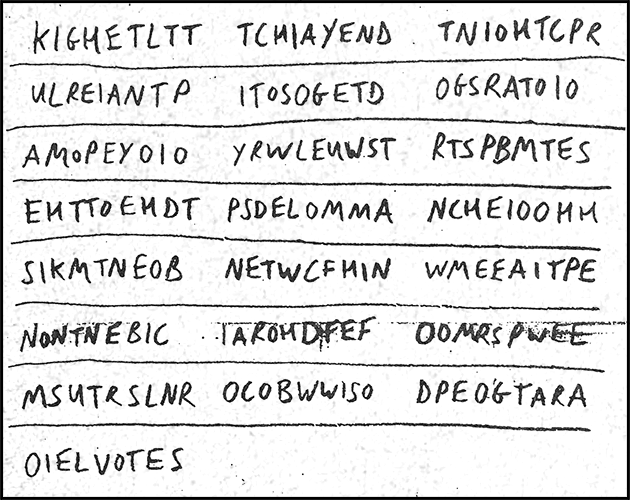 KIGHETLTT TCHIAYEND TNIOHTCPR
ULREIANTP ITOSOGETD OGSRATOIO
AMOPEYOIO YRWLEUWST RTSPBMTES
EHTTOEHDT PSDELOMMA NCHEIOOHH
SIKMTNEOB NETWCFHIN WMEEAITPE
NONTNEBIC IAROHDFEF OOMRSPWEE
MSUTRSLNR OCOBWWISO DPEOGTARA
OIELVOTES